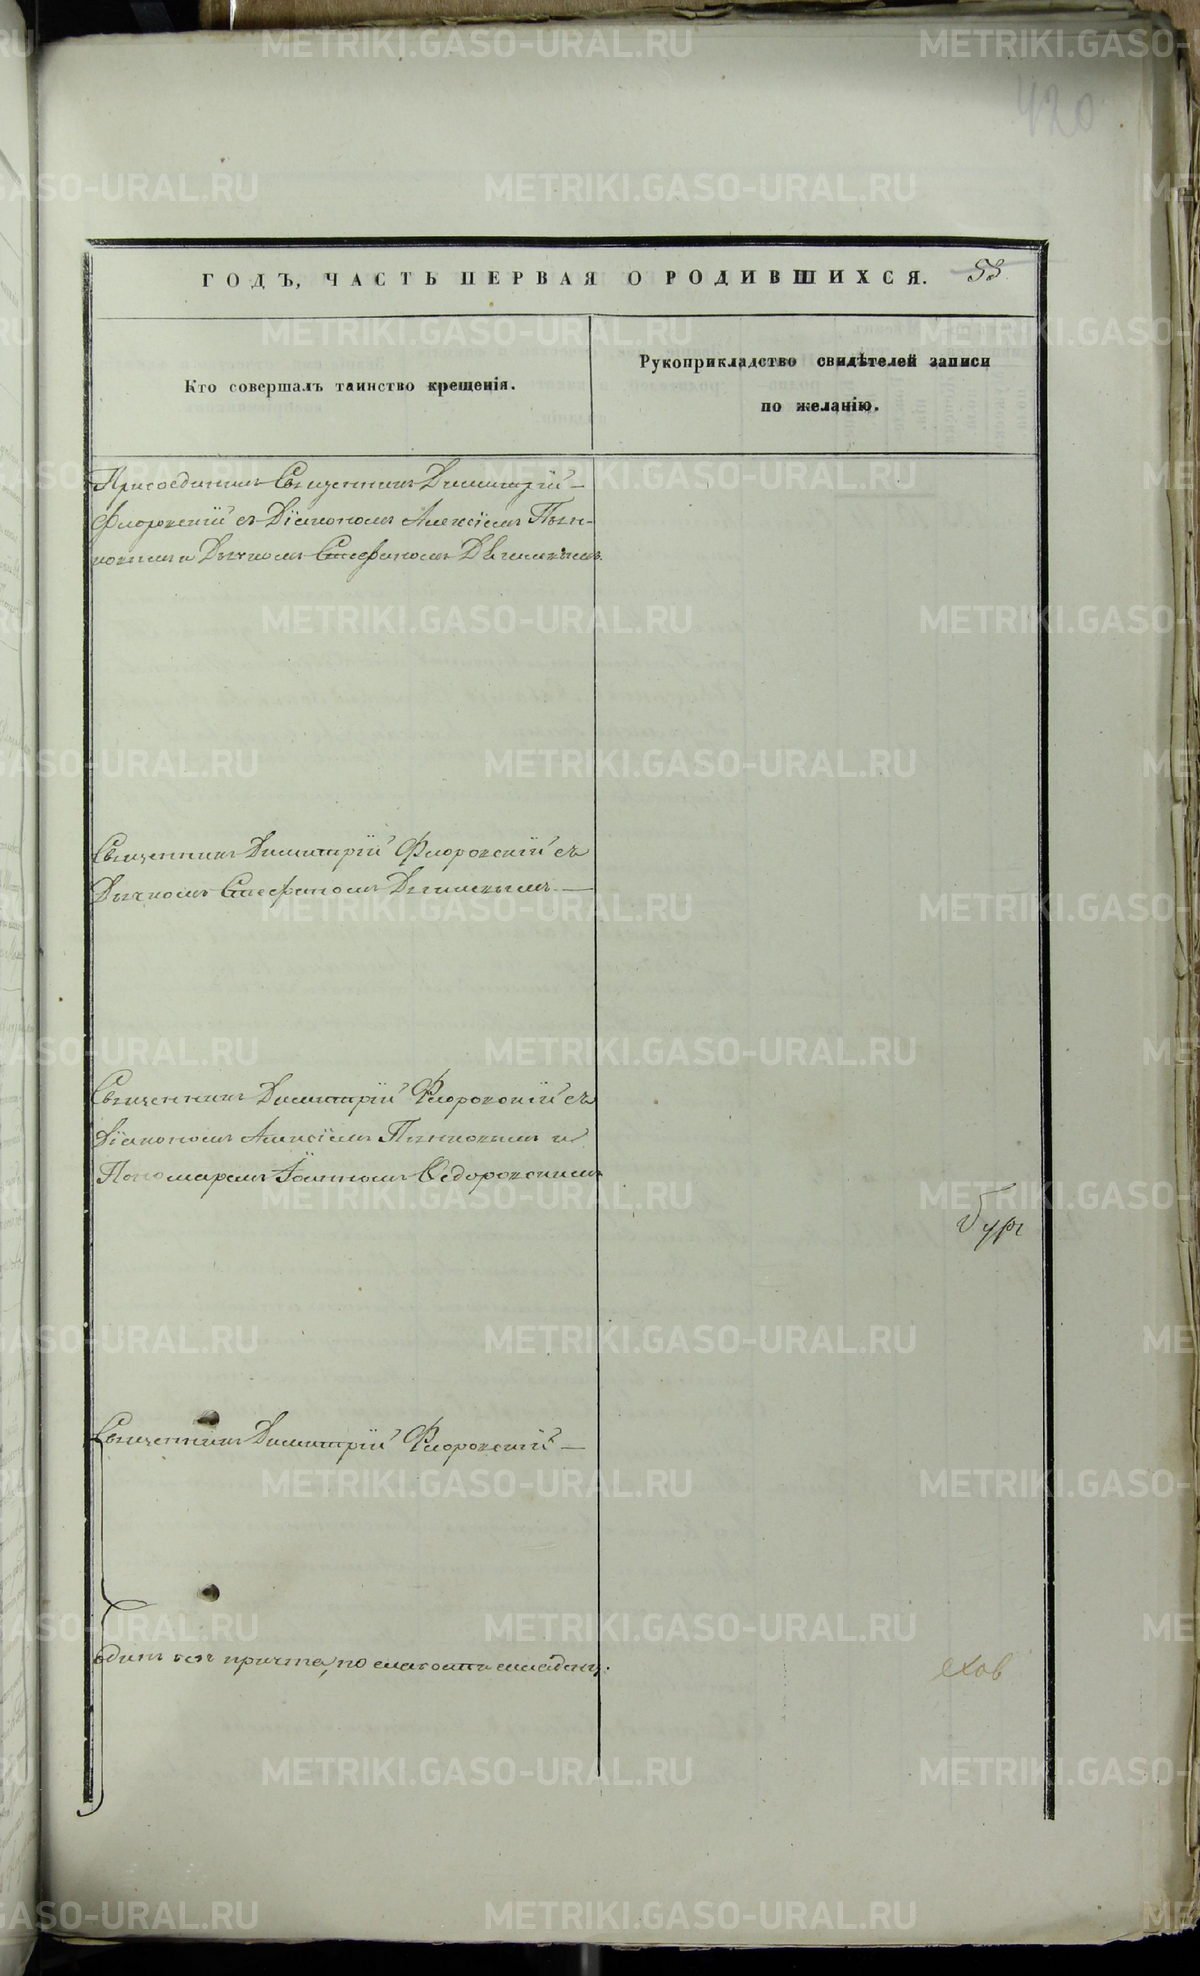 420
ГОДЪ, ЧАСТЬ ПЕРВАЯ О РОДИВШИХСЯ. 53
Кто совершалъ таинство крещенія.
Рукоприкладство свидѣтелей записи
по желанію.
Присоединилъ Священникъ Димитрій
Флоровскій съ Діакономъ Алексіемъ Пень-
ковымъ и Дьячкомъ Стефаномъ
Священникъ Димитрій Флоровскій съ
Дьячкомъ Стефаномъ
Священникъ Димитрій Флоровскій съ
Діакономъ Алексіемъ Пеньковымъ и
Пономаремъ Іоанномъ Ѳедоровскимъ
бург
Священникъ Димитрій Флоровскій
одинъ безъ причта, по слабости младенц.
ехов
METRIKI.GASO-URAL.RU